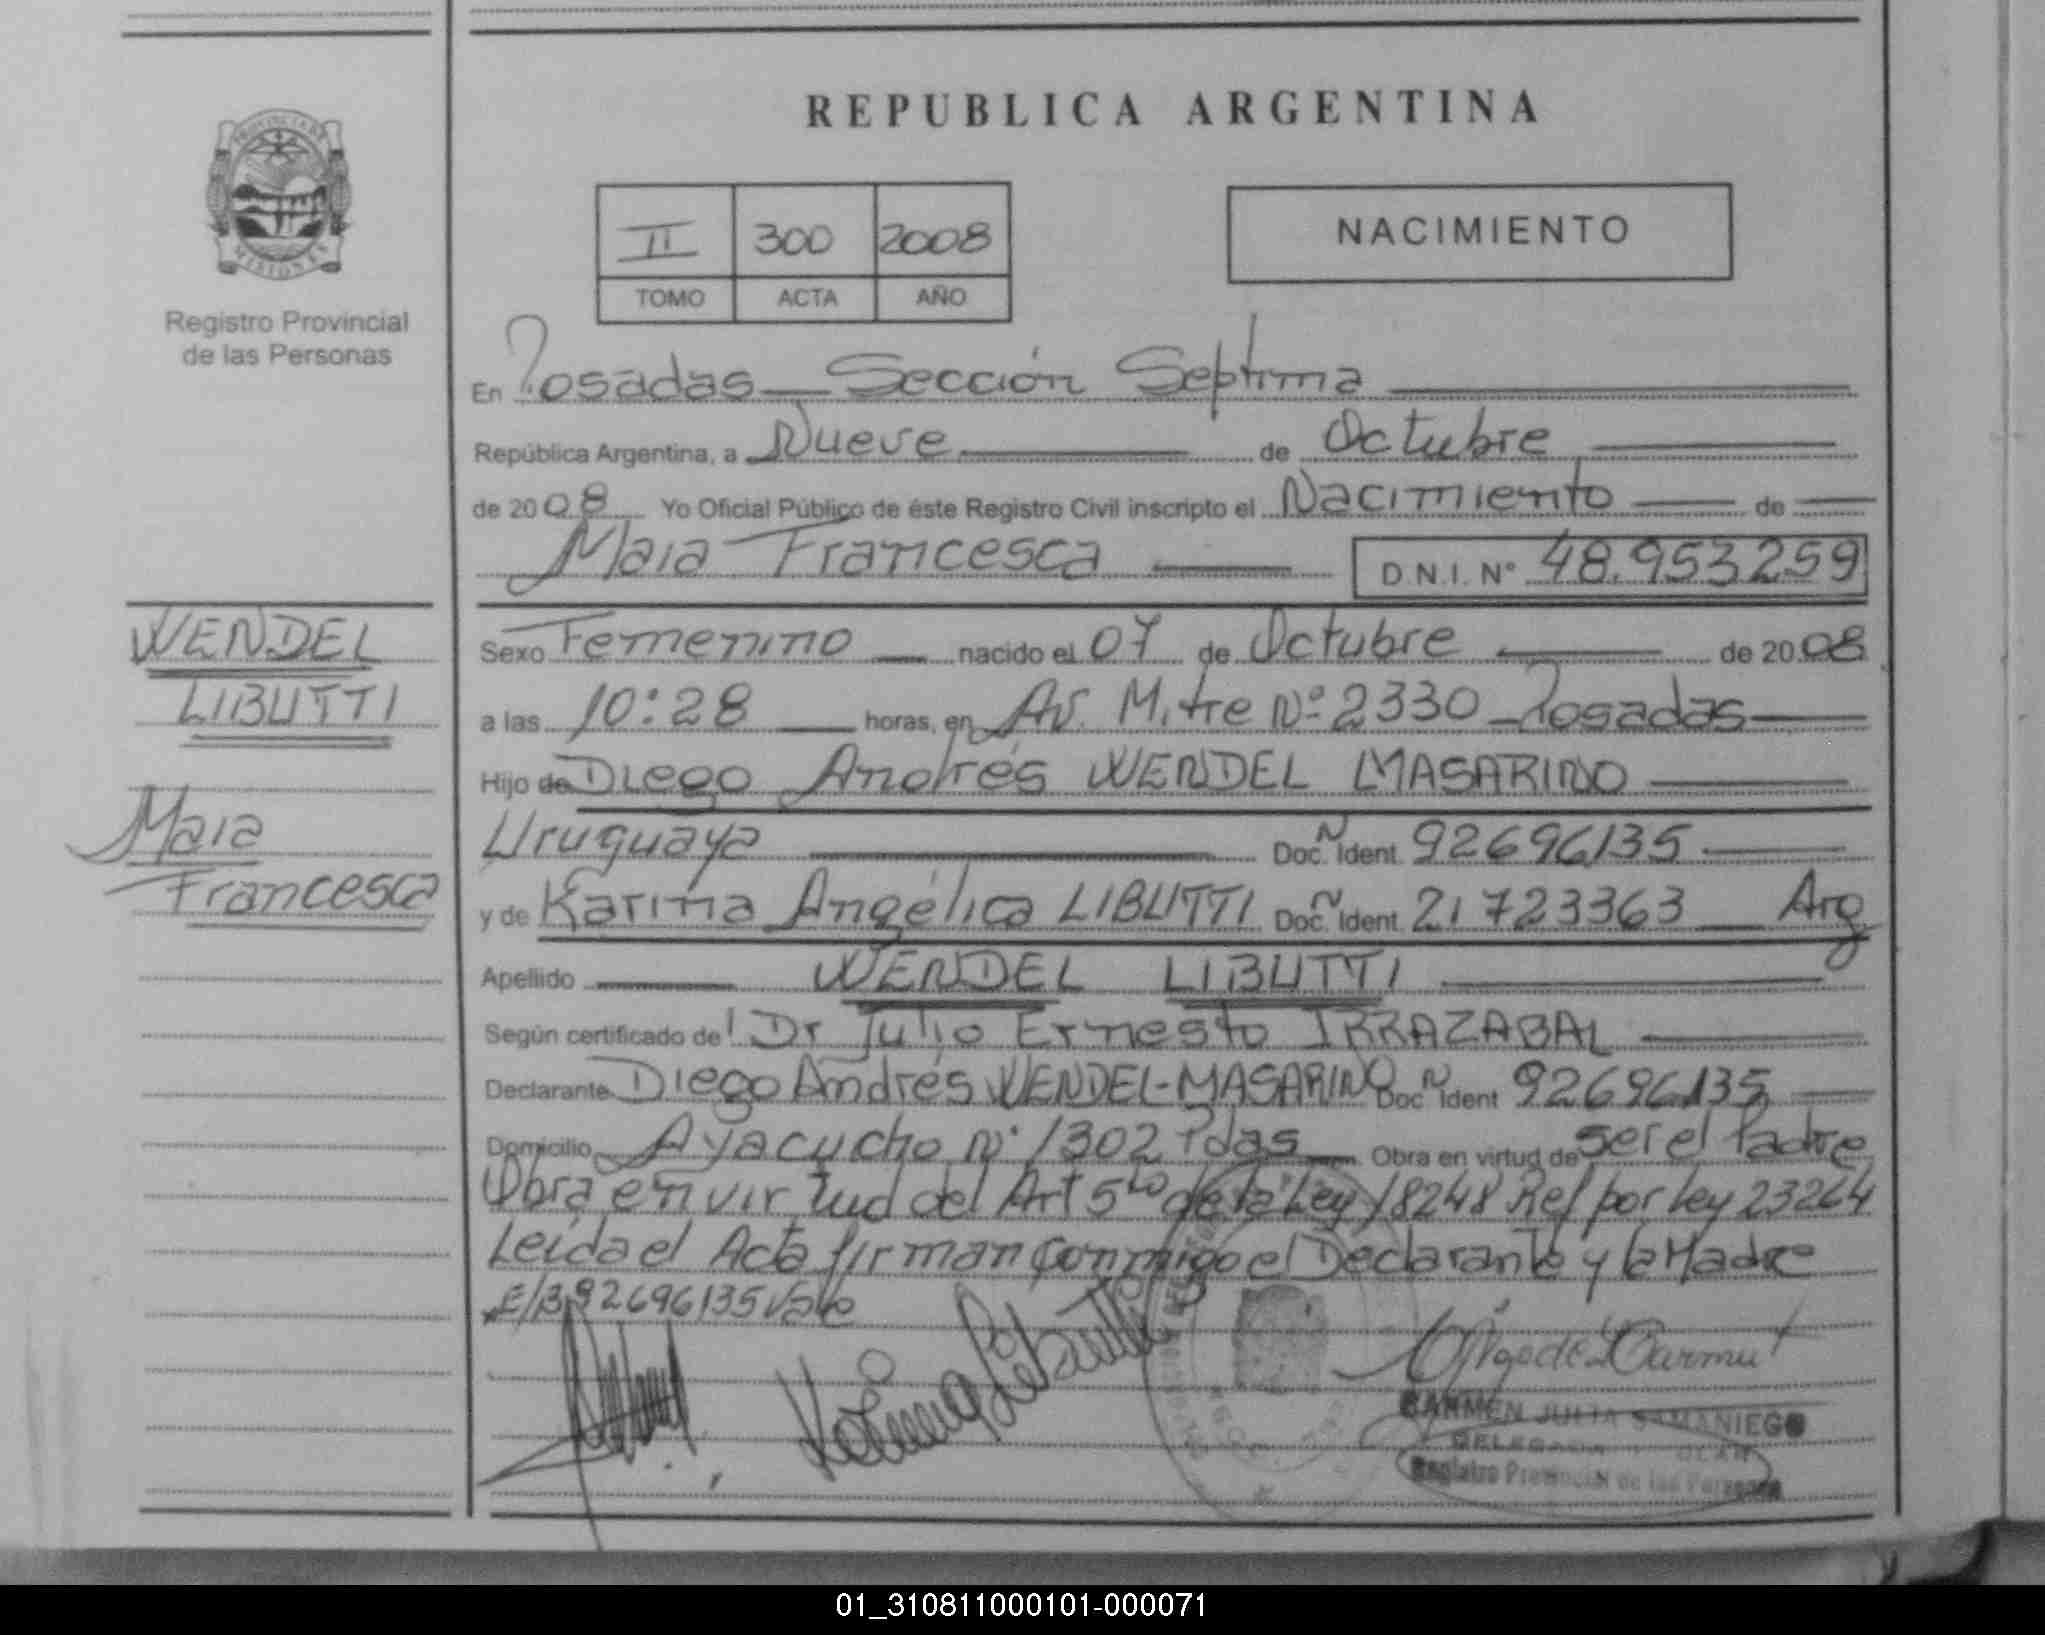 REPUBLICA ARGENTINA
PROVINCIA DE
MISIONES
Registro Provincial
de las Personas
II 300 2008
TOMO ACTA AÑO
NACIMIENTO
En Posadas Sección Septima
República Argentina, a Nueve de Octubre
de 2008 Yo Oficial Público de éste Registro Civil inscripto el Nacimiento de
Maia Francesca D.N.I. Nº 48.953259
WENDEL
LIBUTTI
Maia
Francesca
Sexo Femenino nacido el 07 de Octubre de 2008
a las 10:28 horas, en Av. Mitre Nº 2330 Posadas
Hijo de Diego Andrés WENDEL MASARINO
Uruguaya Doc. Ident. 92696135
y de Karina Angélica LIBUTTI Doc. Ident. 21723363 Arg
Apellido WENDEL LIBUTTI
Según certificado de Dr Julio Ernesto IRRAZABAL
Declarante Diego Andrés WENDEL-MASARINO Doc. Ident 92696135
Domicilio Ayacucho Nº 1302 Pdas Obra en virtud de ser el Padre
Obra en virtud del Art 5to de la Ley 18248 Ref por ley 23264
Leida el Acta firman conmigo el Declarante y la Madre
E/B 92696135 Vale
Karina Libutti
CARMEN JULIA SAMANIEGO
Registro Provincial de las Personas
01_310811000101-000071